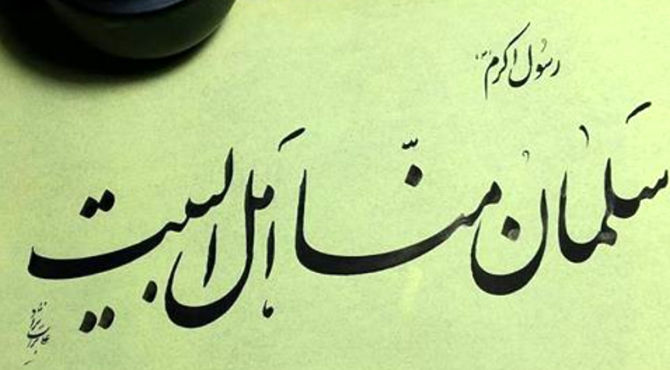 رسول اکرم (ص)
سلمان منّا اهل البیت